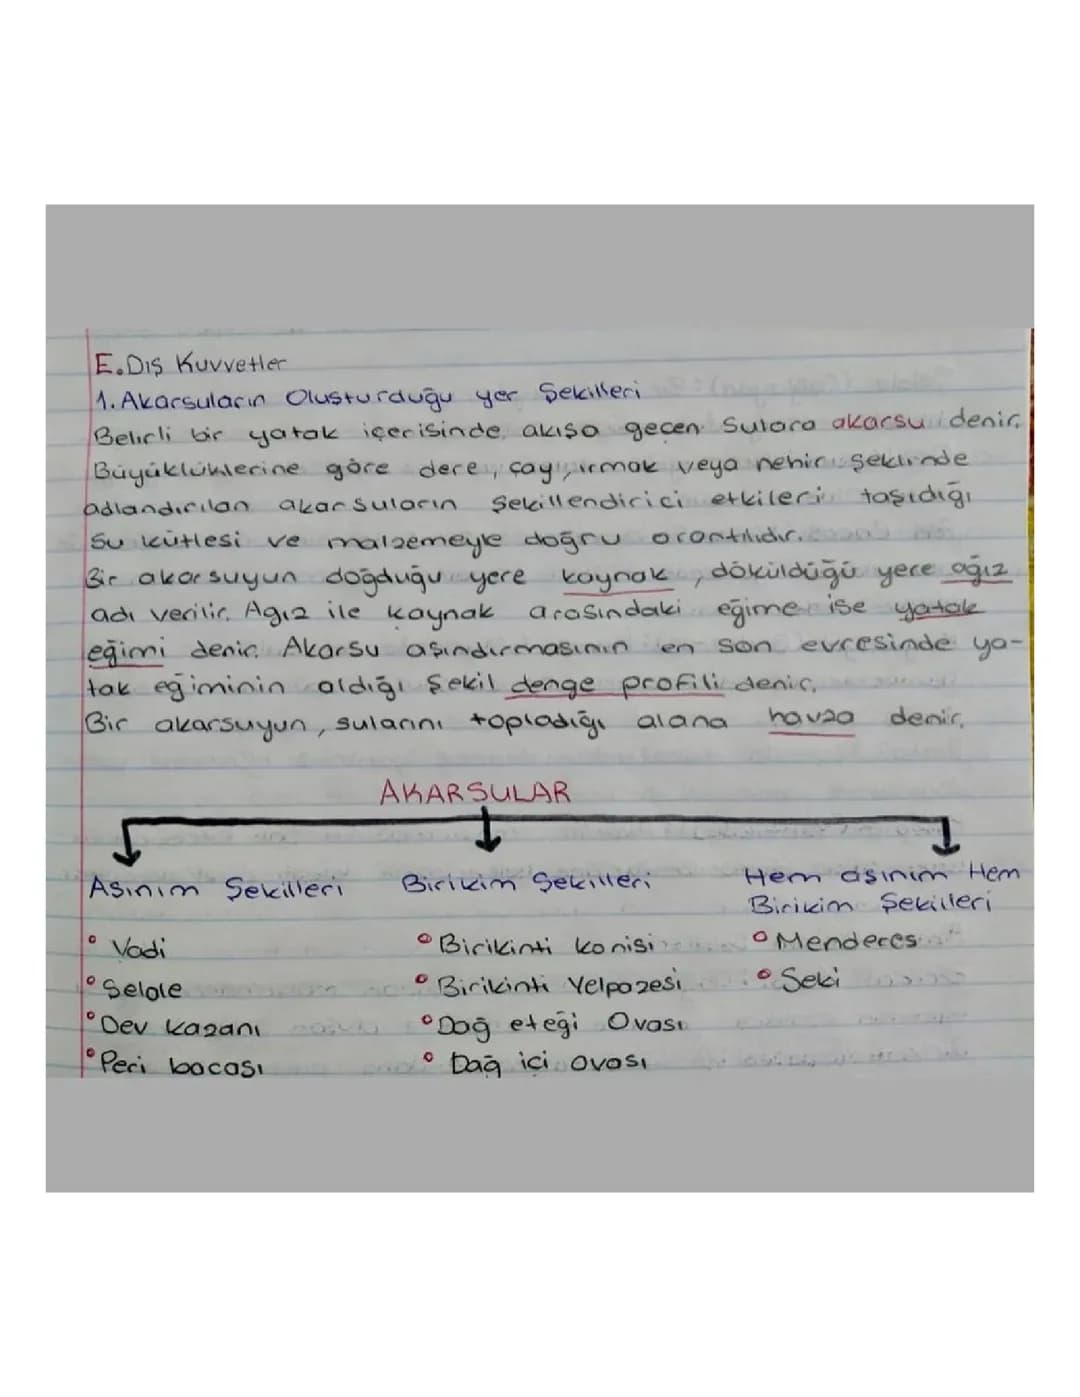 E. Dış Kuvvetler
1. Akarsuların Oluşturduğu yer Şekilleri
Belirli bir yatak içerisinde akışa geçen Sulara akarsu denir.
Büyüklüklerine göre dere, çay, ırmak veya nehir şeklinde
adlandırılan akarsuların şekillendirici etkileri taşıdığı
su kütlesi ve malzemeyle doğru orantılıdır.
Bir akarsuyun doğduğu yere kaynak, döküldüğü yere ağız
adı verilir. Ağız ile kaynak arasındaki eğime ise yatak
eğimi denir. Akarsu aşındırmasının en son evresinde ya-
tak eğiminin aldığı şekil denge profili denir.
Bir akarsuyun, sularını topladığı alana havza denir.
AKARSULAR
Aşınım Şekilleri Birikim Şekilleri Hem aşınım Hem
Birikim Şekilleri
° Vadi ° Birikinti konisi ° Menderes
° Şelale ° Birikinti Yelpazesi ° Seki
° Dev kazanı ° Dağ eteği Ovası
° Peri bacası ° Dağ içi ovası